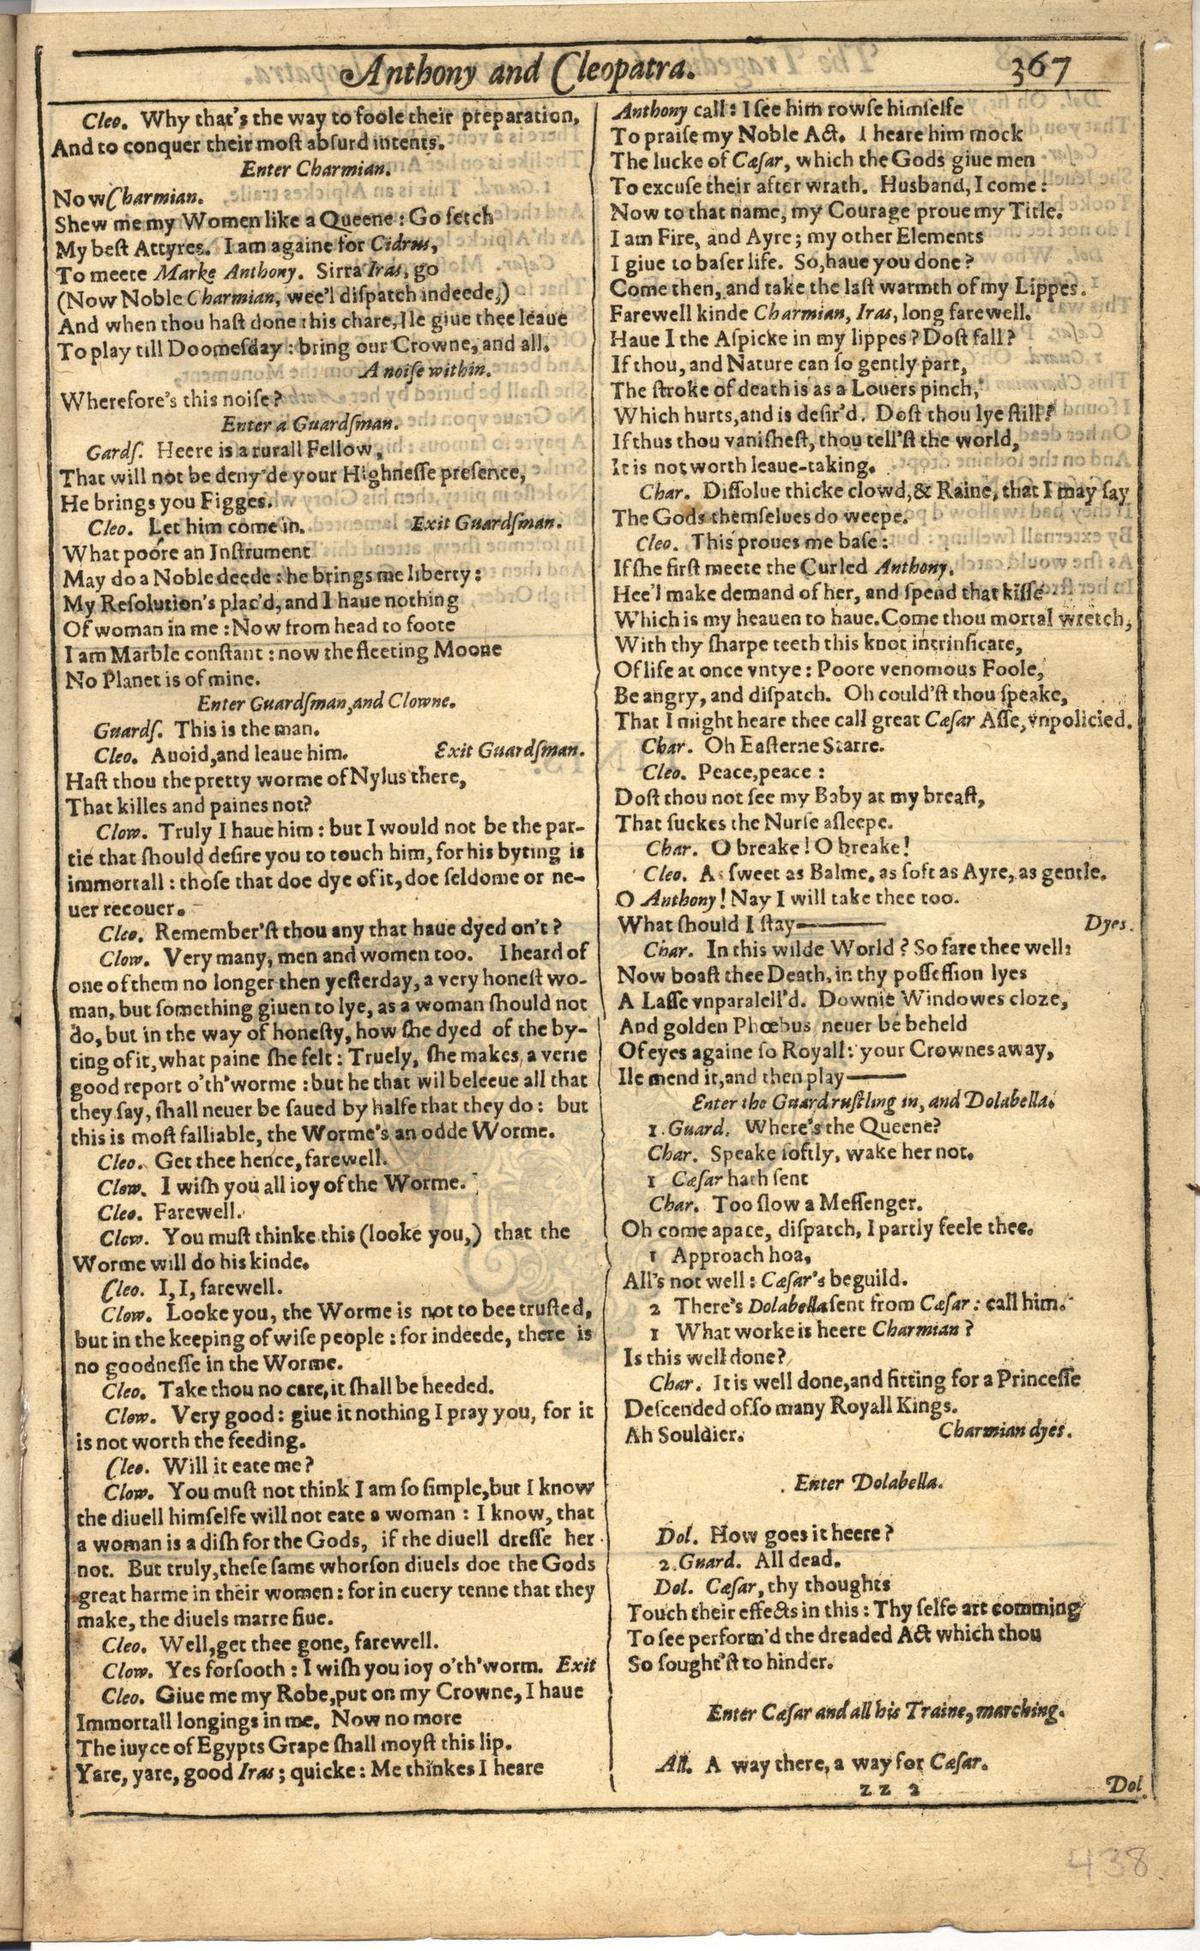 Anthony and Cleopatra. 367
Cleo. Why that's the way to foole their preparation,
And to conquer their moſt abſurd intents.
Enter Charmian.
Now Charmian.
Shew me my Women like a Queene: Go fetch
My beſt Attyres. I am againe for Cidrus,
To meete Marke Anthony. Sirra Iras, go
(Now Noble Charmian, wee'l diſpatch indeede,)
And when thou haſt done this chare, Ile giue thee leaue
To play till Doomeſday: bring our Crowne, and all.
A noiſe within.
Wherefore's this noiſe?
Enter a Guardſman.
Gardſ. Heere is a rurall Fellow,
That will not be deny'de your Highneſſe preſence,
He brings you Figges.
Cleo. Let him come in. Exit Guardſman.
What poore an Inſtrument
May do a Noble deede: he brings me liberty:
My Reſolution's plac'd, and I haue nothing
Of woman in me: Now from head to foote
I am Marble conſtant: now the fleeting Moone
No Planet is of mine.
Enter Guardſman, and Clowne.
Guardſ. This is the man.
Cleo. Auoid, and leaue him. Exit Guardſman.
Haſt thou the pretty worme of Nylus there,
That killes and paines not?
Clow. Truly I haue him: but I would not be the par-
tie that ſhould deſire you to touch him, for his byting is
immortall: thoſe that doe dye of it, doe ſeldome or ne-
uer recouer.
Cleo. Remember'ſt thou any that haue dyed on't?
Clow. Very many, men and women too. I heard of
one of them no longer then yeſterday, a very honeſt wo-
man, but ſomething giuen to lye, as a woman ſhould not
do, but in the way of honeſty, how ſhe dyed of the by-
ting of it, what paine ſhe felt: Truely, ſhe makes a verie
good report o'th'worme: but he that wil beleeue all that
they ſay, ſhall neuer be ſaued by halfe that they do: but
this is moſt falliable, the Worme's an odde Worme.
Cleo. Get thee hence, farewell.
Clow. I wiſh you all ioy of the Worme.
Cleo. Farewell.
Clow. You muſt thinke this (looke you,) that the
Worme will do his kinde.
Cleo. I, I, farewell.
Clow. Looke you, the Worme is not to bee truſted,
but in the keeping of wiſe people: for indeede, there is
no goodneſſe in the Worme.
Cleo. Take thou no care, it ſhall be heeded.
Clow. Very good: giue it nothing I pray you, for it
is not worth the feeding.
Cleo. Will it eate me?
Clow. You muſt not think I am ſo ſimple, but I know
the diuell himſelfe will not eate a woman: I know, that
a woman is a diſh for the Gods, if the diuell dreſſe her
not. But truly, theſe ſame whorſon diuels doe the Gods
great harme in their women: for in euery tenne that they
make, the diuels marre fiue.
Cleo. Well, get thee gone, farewell.
Clow. Yes forſooth: I wiſh you ioy o'th'worm. Exit
Cleo. Giue me my Robe, put on my Crowne, I haue
Immortall longings in me. Now no more
The iuyce of Egypts Grape ſhall moyſt this lip.
Yare, yare, good Iras; quicke: Me thinkes I heare
Anthony call: I ſee him rowſe himſelfe
To praiſe my Noble Act. I heare him mock
The lucke of Cæſar, which the Gods giue men
To excuſe their after wrath. Husband, I come:
Now to that name, my Courage proue my Title.
I am Fire, and Ayre; my other Elements
I giue to baſer life. So, haue you done?
Come then, and take the laſt warmth of my Lippes.
Farewell kinde Charmian, Iras, long farewell.
Haue I the Aſpicke in my lippes? Doſt fall?
If thou, and Nature can ſo gently part,
The ſtroke of death is as a Louers pinch,
Which hurts, and is deſir'd. Doſt thou lye ſtill?
If thus thou vaniſheſt, thou tell'ſt the world,
It is not worth leaue-taking.
Char. Diſſolue thicke clowd, & Raine, that I may ſay
The Gods themſelues do weepe.
Cleo. This proues me baſe:
If ſhe firſt meete the Curled Anthony,
Hee'l make demand of her, and ſpend that kiſſe
Which is my heauen to haue. Come thou mortal wretch,
With thy ſharpe teeth this knot intrinſicate,
Of life at once vntye: Poore venomous Foole,
Be angry, and diſpatch. Oh could'ſt thou ſpeake,
That I might heare thee call great Cæſar Aſſe, vnpolicied.
Char. Oh Eaſterne Starre.
Cleo. Peace, peace:
Doſt thou not ſee my Baby at my breaſt,
That ſuckes the Nurſe aſleepe.
Char. O breake! O breake!
Cleo. As ſweet as Balme, as ſoft as Ayre, as gentle.
O Anthony! Nay I will take thee too.
What ſhould I ſtay—— Dyes.
Char. In this wilde World? So fare thee well:
Now boaſt thee Death, in thy poſſeſſion lyes
A Laſſe vnparalell'd. Downie Windowes cloze,
And golden Phœbus neuer be beheld
Of eyes againe ſo Royall: your Crownes away,
Ile mend it, and then play——
Enter the Guard ruſtling in, and Dolabella.
1. Guard. Where's the Queene?
Char. Speake ſoftly, wake her not.
1 Cæſar hath ſent
Char. Too ſlow a Meſſenger.
Oh come apace, diſpatch, I partly feele thee.
1 Approach hoa,
All's not well: Cæſar's beguild.
2 There's Dolabella ſent from Cæſar: call him.
1 What worke is heere Charmian?
Is this well done?
Char. It is well done, and fitting for a Princeſſe
Deſcended of ſo many Royall Kings.
Ah Souldier. Charmian dyes.
Enter Dolabella.
Dol. How goes it heere?
2. Guard. All dead.
Dol. Cæſar, thy thoughts
Touch their effects in this: Thy ſelfe art comming
To ſee perform'd the dreaded Act which thou
So ſought'ſt to hinder.
Enter Cæſar and all his Traine, marching.
All. A way there, a way for Cæſar.
zz 2 Dol.
438